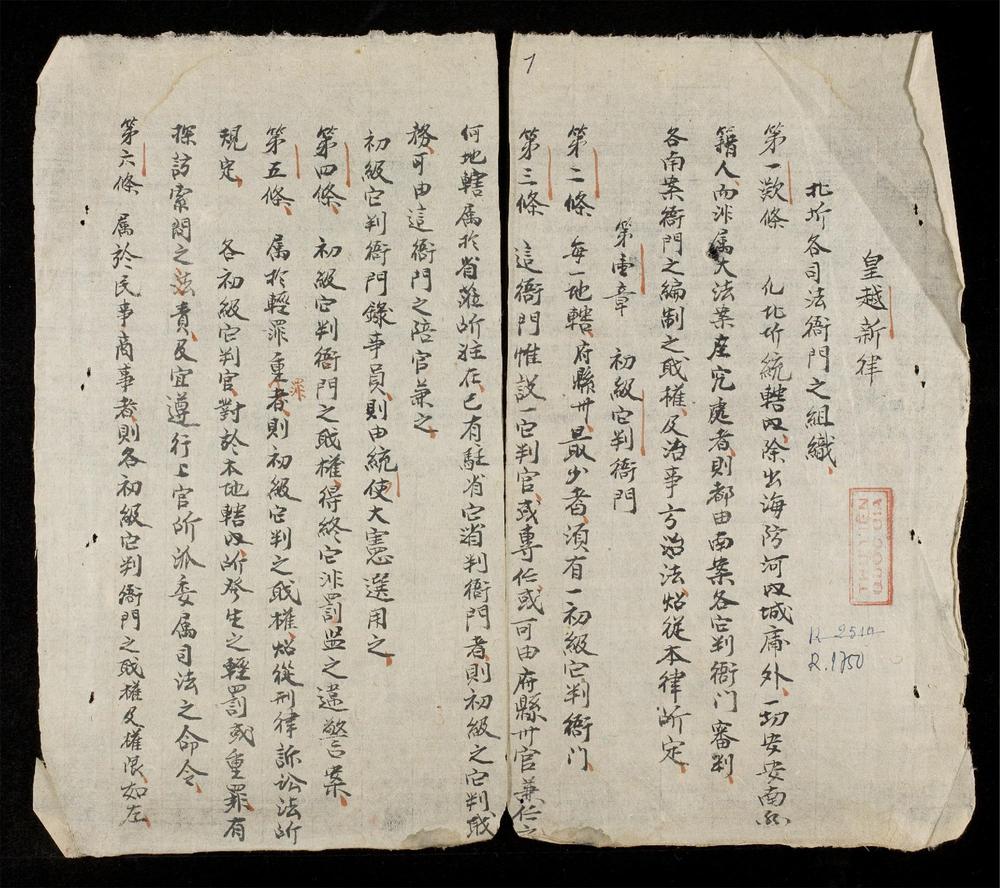 皇越新律
北圻各司法衙門之組織
第一欵條 凢北圻統轄内除出海防河内城庯外一切安安南
籍人而非属大法案座究處者則都由南案各它判衙门審判
各南案衙門之编制之戝權及治事方治法炤從本律所定
第壹章 初級它判衙門
第二條 每一地轄府縣卅最少者須有一初級它判衙门
第三條 這衙門惟説一它判官或專仁或可由府縣卅官兼仁之
何地轄属扵省莅所往在已有駐省它省判衙門者則初級之它判戝
務可由這衙門之陪官兼之
初級它判衙門錄事員則由統使大憲選用之
第四條 初級它判衙門之戝權得終它非罰盥之違警案
第五條 属扵輕罪重罪者則初級它判之戝權炤從刑律訴訟法所
規定 各初級它判官對於本地轄内所發生之輕罰或重罪有
探訪索問之法責及宜遵行上官所派委属司法之命令
第六條 属於民事商事者則各初級它判衙門之戝權及權限如左
1
THƯ VIỆN
QUỐC GIA
R 2510
R.1750